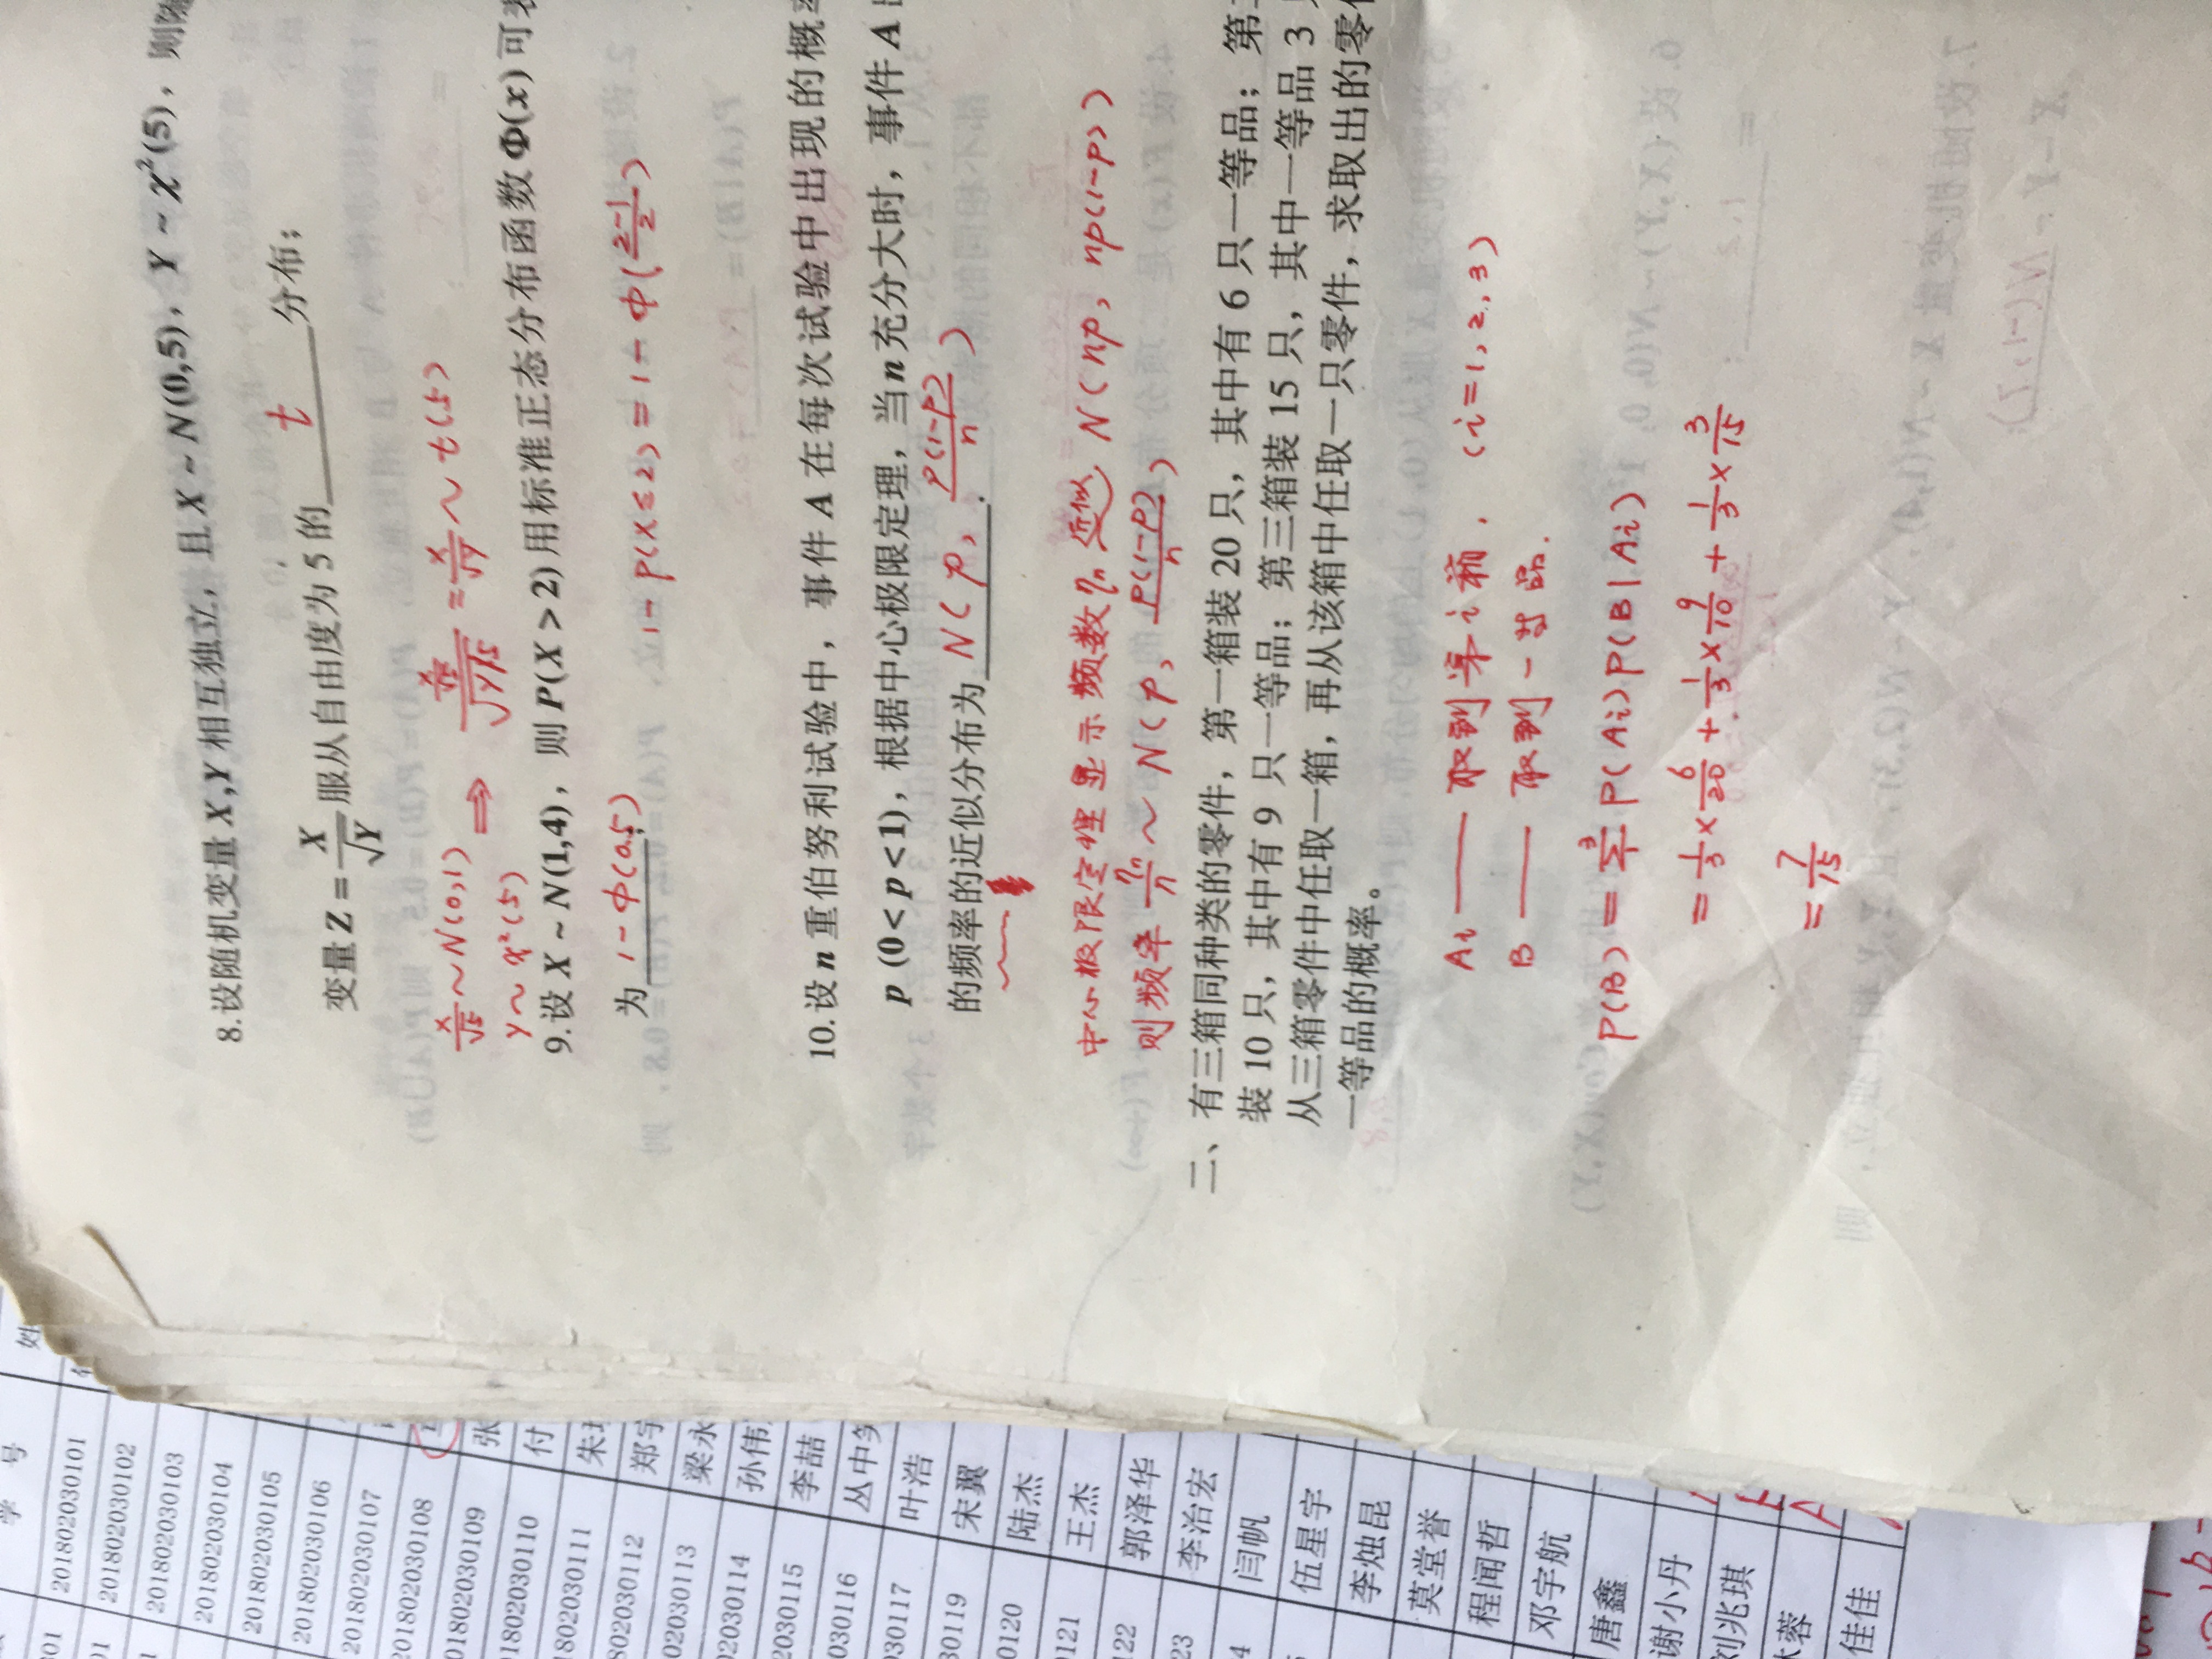 学 号
姓
201802030101
201802030102
201802030103
201802030104
201802030105
201802030106
201802030107
201802030108
01802030109 张
1802030110 付
1802030111 朱
802030112 郑宇
02030113 梁永
02030114 孙伟
2030115 李喆
030116 丛中笑
030117 叶浩
30119 宋翼
0120 陆杰
0121 王杰
122 郭泽华
23 李治宏
4 闫帆
伍星宇
李烛昆
莫堂誉
程闻哲
邓宇航
唐鑫
谢小丹
刘兆琪
蓉
佳佳
8.设随机变量 X,Y 相互独立，且 X ~ N(0,5)，Y ~ χ²(5)，则随
变量 Z = X/√Y 服从自由度为 5 的 t 分布；
X/√5 ~ N(0,1) ⟹ (X/√5)/√(Y/5) = X/√Y ~ t(5)
Y ~ χ²(5)
9.设 X ~ N(1,4)，则 P(X > 2) 用标准正态分布函数 Φ(x) 可表
为 1-Φ(0.5)；
1-P(X≤2) = 1-Φ((2-1)/2)
10.设 n 重伯努利试验中，事件 A 在每次试验中出现的概率
p (0 < p < 1)，根据中心极限定理，当 n 充分大时，事件 A
的频率的近似分布为 N(p, p(1-p)/n).
中心极限定理显示频数 ηn 近似 N(np, np(1-p))
则频率 ηn/n ~ N(p, p(1-p)/n)
二、有三箱同种类的零件，第一箱装 20 只，其中有 6 只一等品；第二
装 10 只，其中有 9 只一等品；第三箱装 15 只，其中一等品 3
从三箱零件中任取一箱，再从该箱中任取一只零件，求取出的零件
一等品的概率。
Ai —— 取到第 i 箱. (i=1,2,3)
B —— 取到一等品.
P(B) = Σ³₁ P(Ai)P(B|Ai)
= 1/3 × 6/20 + 1/3 × 9/10 + 1/3 × 3/15
= 7/15